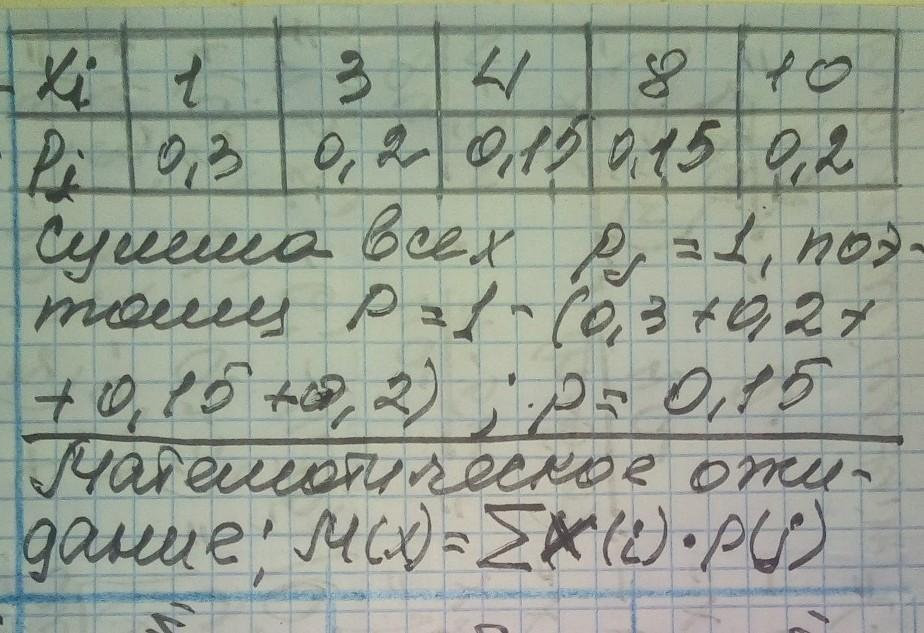 Xi 1 3 4 8 10
Pi 0,3 0,2 0,15 0,15 0,2
Сумма всех pj = 1, поэ-
тому P = 1 - (0,3 + 0,2 +
+ 0,15 + 0,2) ; p = 0,15
Математическое ожи-
дание; M(x) = ∑X(i)·p(j)